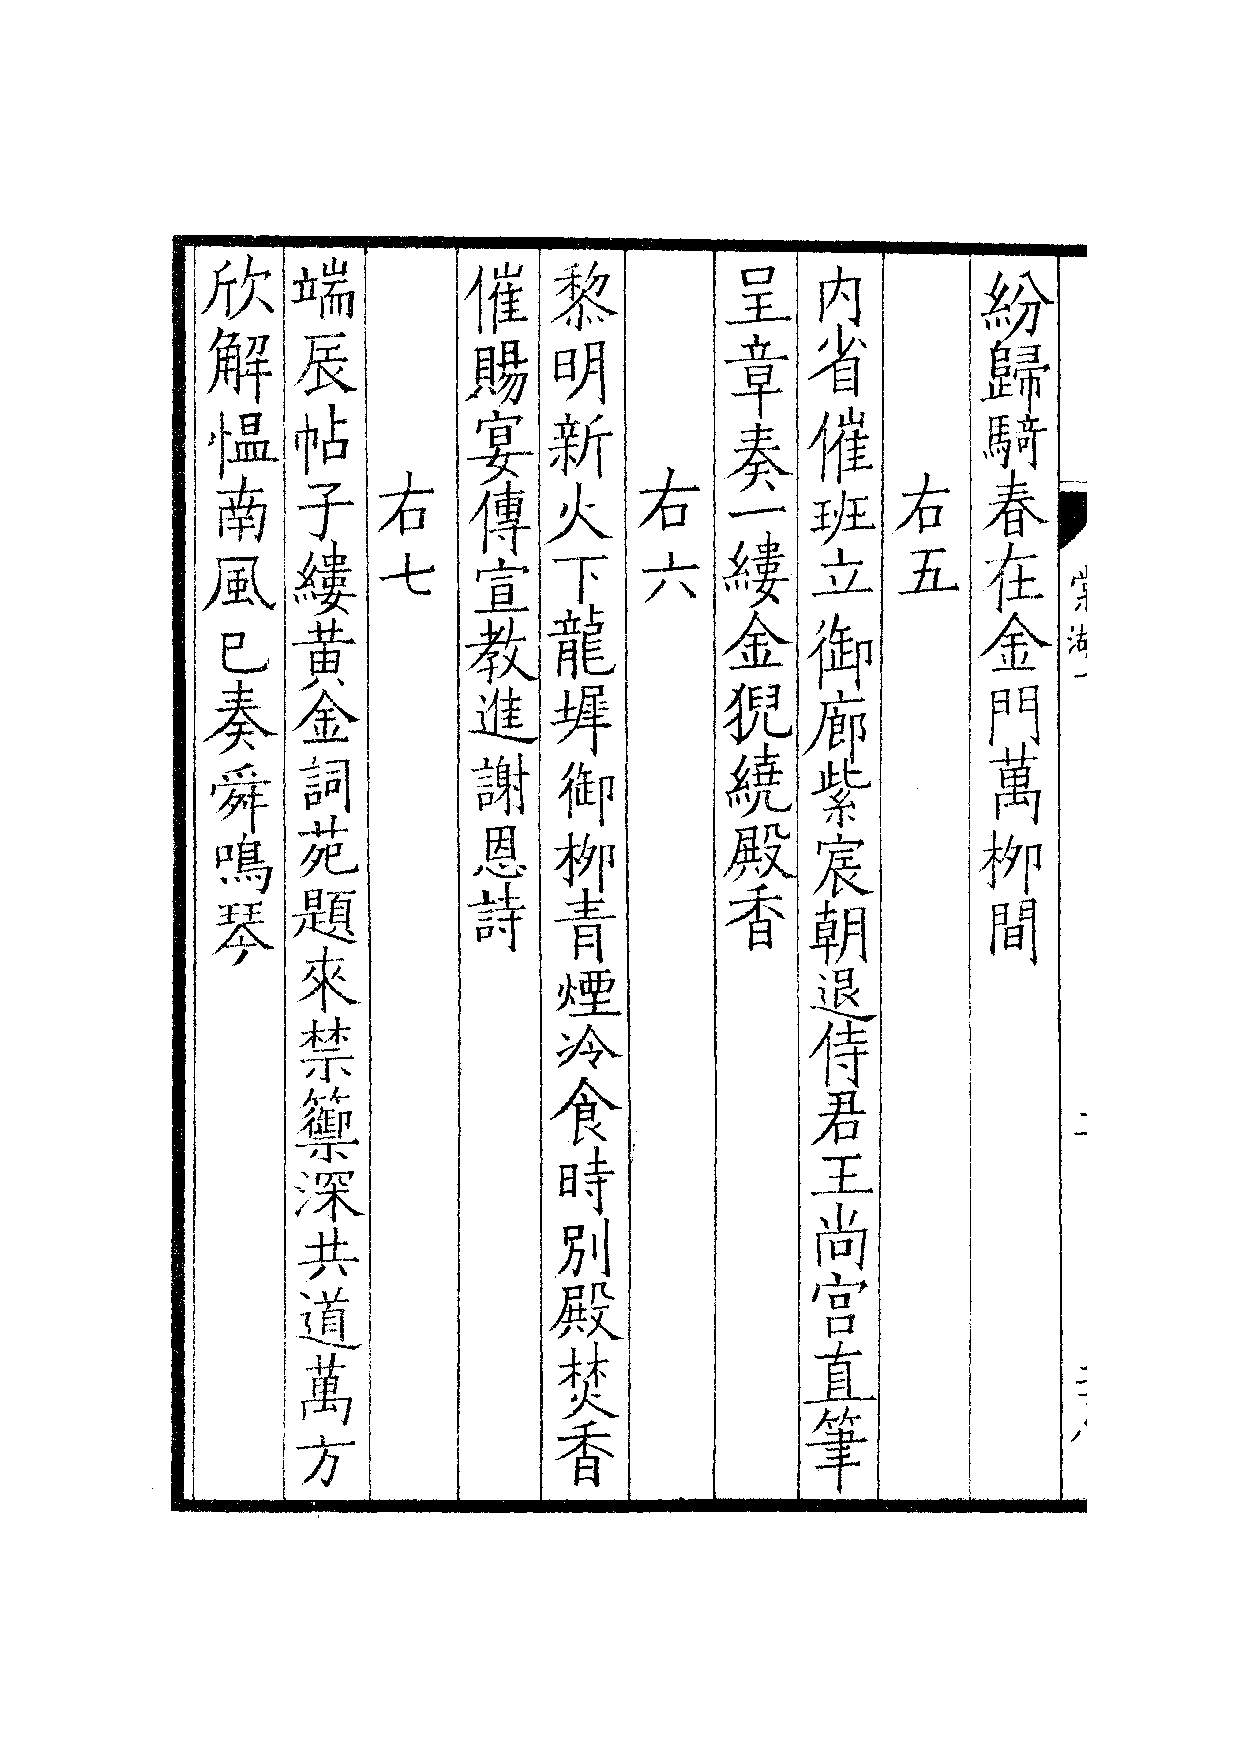 紛歸騎春在金門萬柳間
右五
内省催班立御廊紫宸朝退侍君王尚宮直筆
呈章奏一縷金猊繞殿香
右六
黎明新火下龍墀御柳青煙冷食時別殿焚香
催賜宴傳宣教進謝恩詩
右七
端辰帖子縷黄金詞苑題來禁籞深共道萬方
欣解愠南風已奏舜鳴琴